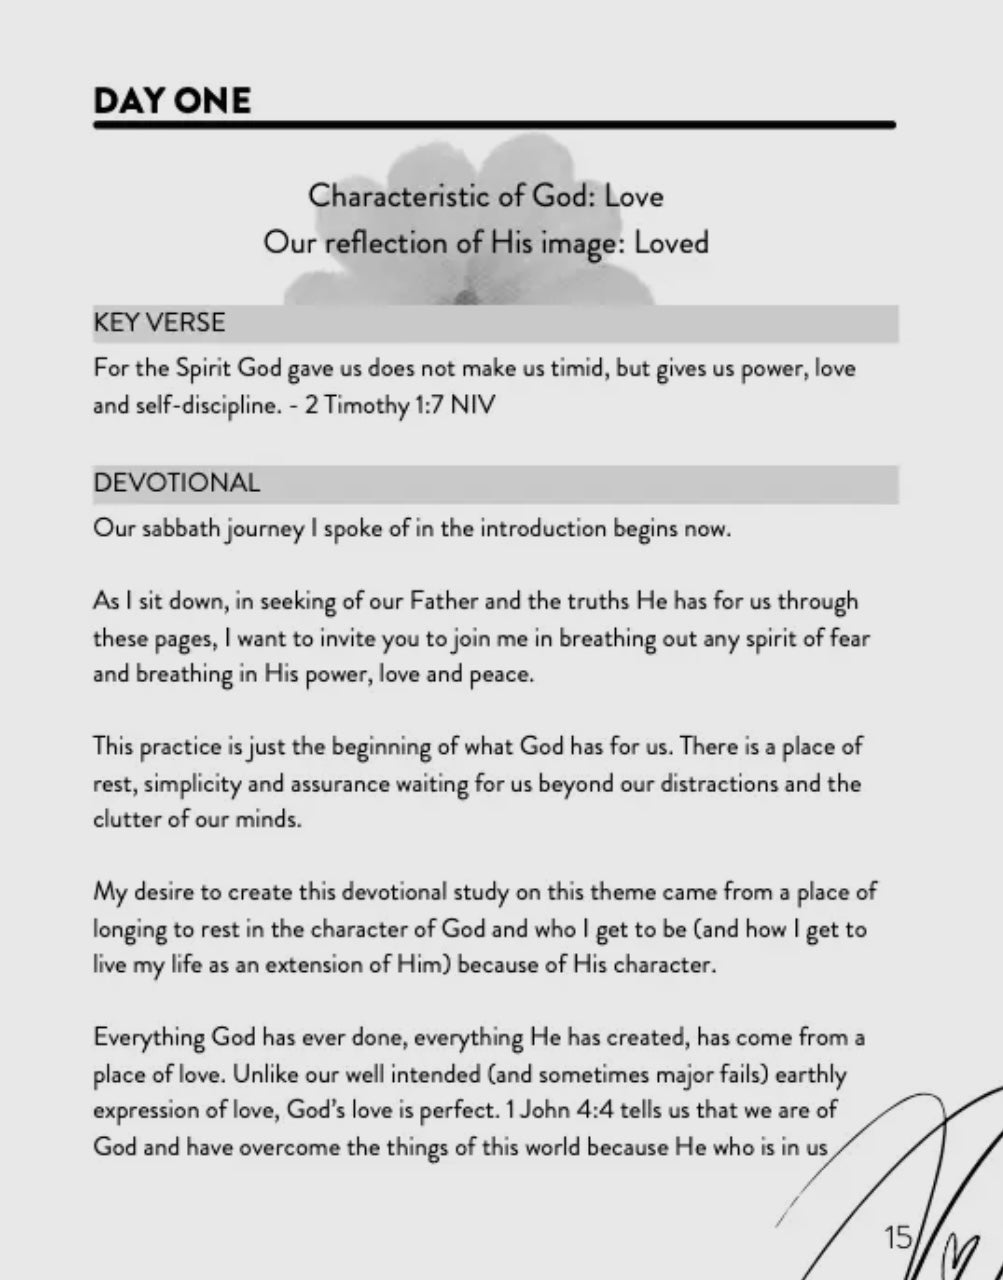 DAY ONE
Characteristic of God: Love
Our reflection of His image: Loved
KEY VERSE
For the Spirit God gave us does not make us timid, but gives us power, love
and self-discipline. - 2 Timothy 1:7 NIV
DEVOTIONAL
Our sabbath journey I spoke of in the introduction begins now.
As I sit down, in seeking of our Father and the truths He has for us through
these pages, I want to invite you to join me in breathing out any spirit of fear
and breathing in His power, love and peace.
This practice is just the beginning of what God has for us. There is a place of
rest, simplicity and assurance waiting for us beyond our distractions and the
clutter of our minds.
My desire to create this devotional study on this theme came from a place of
longing to rest in the character of God and who I get to be (and how I get to
live my life as an extension of Him) because of His character.
Everything God has ever done, everything He has created, has come from a
place of love. Unlike our well intended (and sometimes major fails) earthly
expression of love, God's love is perfect. 1 John 4:4 tells us that we are of
God and have overcome the things of this world because He who is in us
15